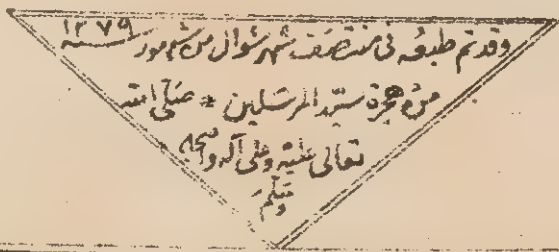 وقد تم طبعه فى منتصف شهر شوال من شهور ١٣٧٩
من هجرة سيد المرسلين * صلى الله
تعالى عليه وعلى آله وصحبه
وسلم